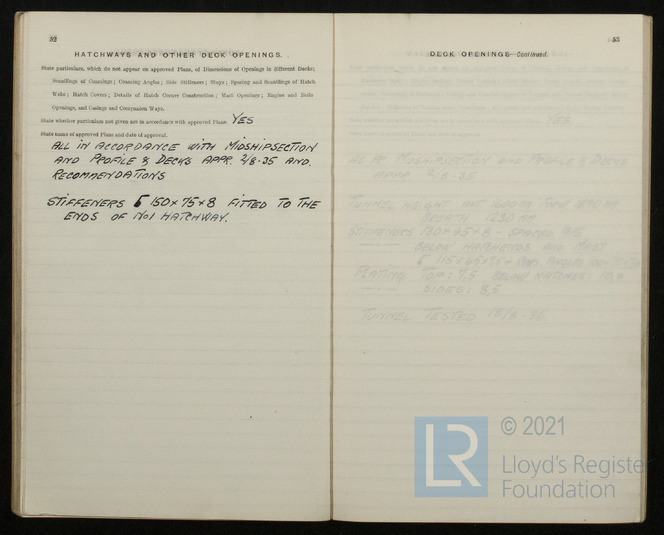 52
HATCHWAYS AND OTHER DECK OPENINGS.
State particulars, which do not appear on approved Plans, of Dimensions of Openings in different Decks;
Scantlings of Coamings; Coaming Angles; Side Stiffeners; Stays; Spacing and Scantlings of Hatch
Webs; Hatch Covers; Details of Hatch Corner Construction; Mast Openings; Engine and Boiler
Openings, and Casings and Companion Ways.
State whether particulars not given are in accordance with approved Plans. YES
State name of approved Plans and date of approval.
ALL IN ACCORDANCE WITH MIDSHIPSECTION
AND PROFILE & DECKS APPR. 2/8-35 AND.
RECOMMENDATIONS
STIFFENERS 150 x 75 x 8 FITTED TO THE
ENDS OF No1 HATCHWAY.
53
DECK OPENINGS—Continued.
YES
MIDSHIPSECTION AND PROFILE & DECKS
APPR 2/8-35
TUNNEL HEIGHT
STIFFENERS
BELOW HATCHENDS AND MAST
PLATING TOP: 7,5 BELOW HATCHES:
SIDES: 8,5
TUNNEL TESTED
LR
© 2021
Lloyd's Register
Foundation